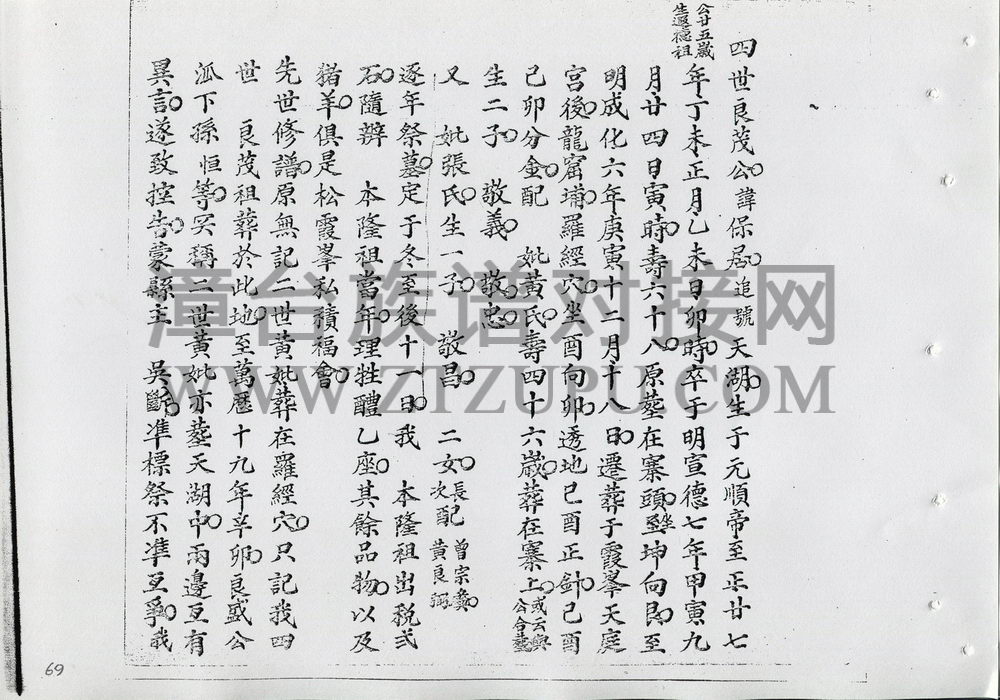 公廿五歲
生遯德祖
四世良茂公諱保居追號天湖生于元順帝至正廿七
年丁未正月乙未日卯時卒于明宣德七年甲寅九
月廿四日寅時壽六十八原塟在寨頭坐坤向艮至
明成化六年庚寅十二月十八日遷葬于霞峯天庭
宮後龍窟埔羅經穴坐酉向卯透地己酉正針己酉
己卯分金配 妣黃氏壽四十六歲葬在寨上或云與公合塟
生二子 敬義 敬忠
又 妣張氏生一子 敬昌 二女長配 曾宗彝 次配 黃良弼
逐年祭墓定于冬至後十一日我 本隆祖出稅弍
石隨辦 本隆祖當年理牲醴乙座其餘品物以及
猪羊俱是松霞峯私積福會
先世修譜原無記二世黃妣葬在羅經穴只記我四
世 良茂祖葬於此地至萬曆十九年辛卯良盛公
派下孫恒等冥稱二世黃妣亦塟天湖中兩邊互有
異言遂致控告蒙縣主 吳斷準標祭不準互爭我
漳台族谱对接网
WWW.ZTZUPU.COM
69